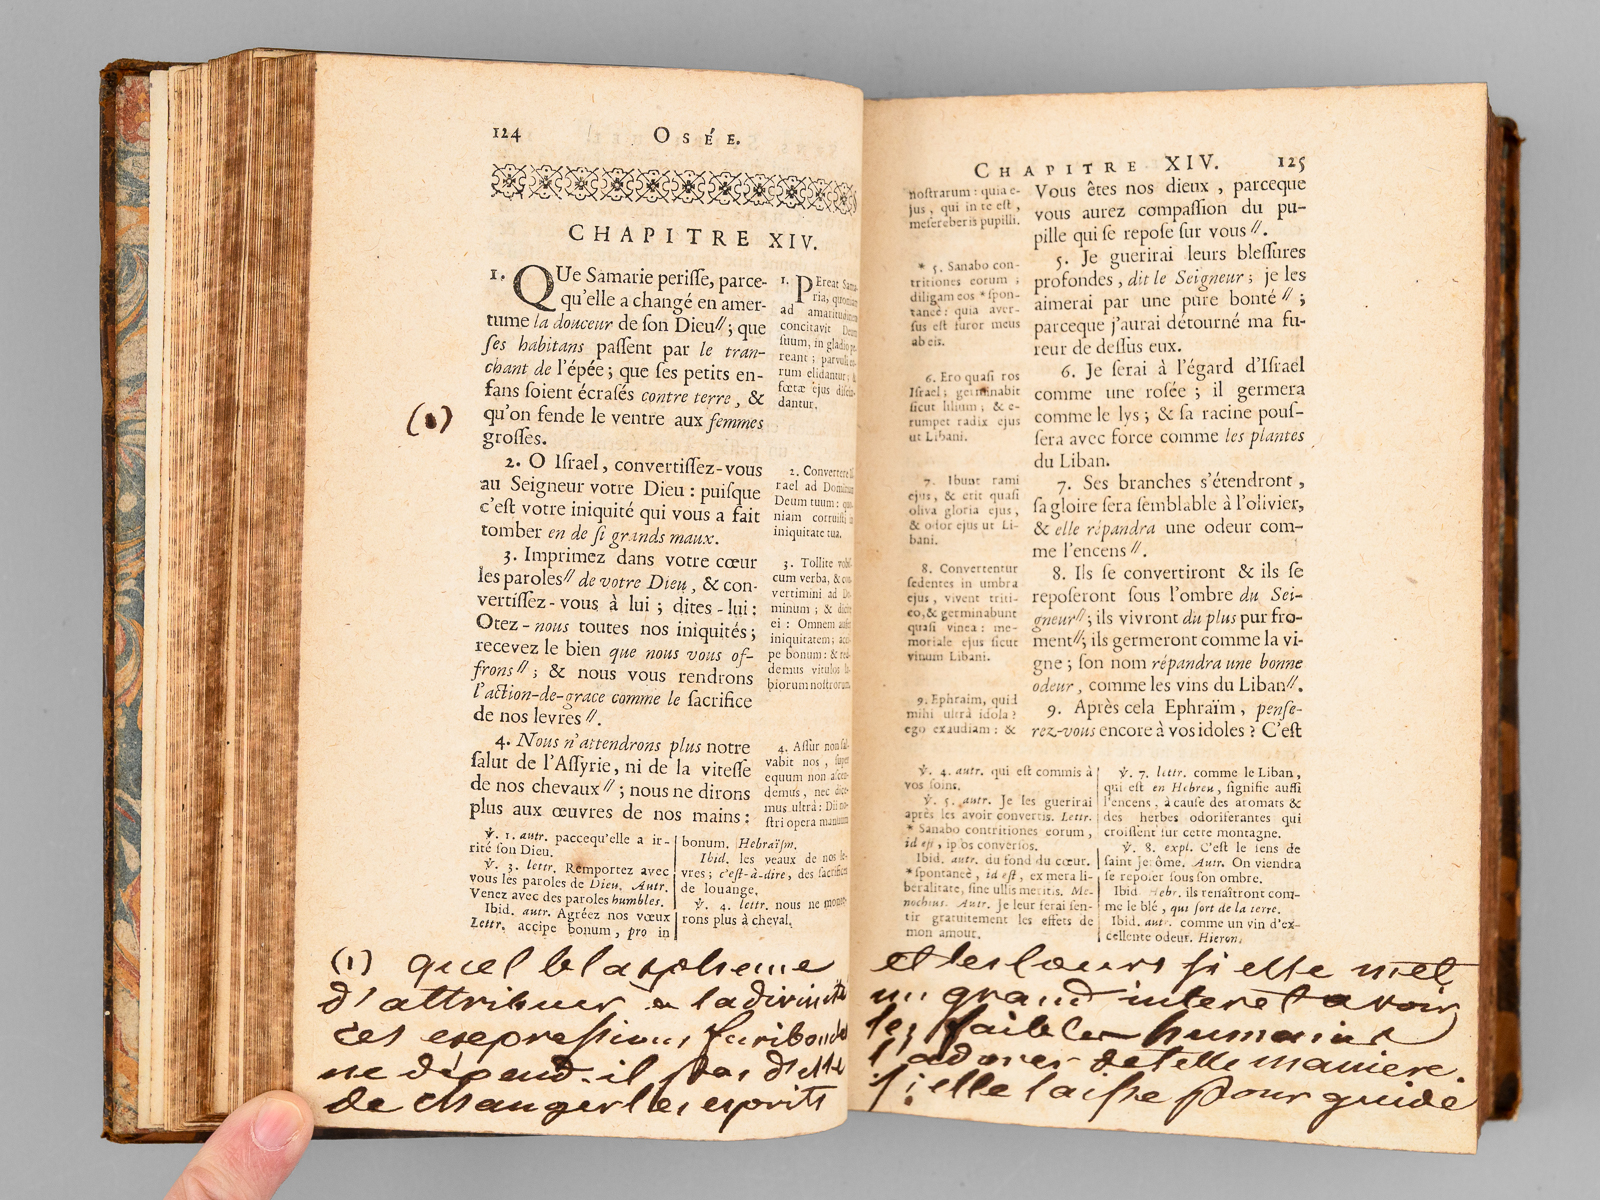 124
OSÉE.
CHAPITRE XIV.
1. QUe Samarie perisse, parce-
qu'elle a changé en amer-
tume la douceur de son Dieu // ; que
ses habitans passent par le tran-
chant de l'épée ; que ses petits en-
fans soient écrasés contre terre, &
qu'on fende le ventre aux femmes
grosses.
2. O Israel, convertissez-vous
au Seigneur votre Dieu : puisque
c'est votre iniquité qui vous a fait
tomber en de si grands maux.
3. Imprimez dans votre cœur
les paroles // de votre Dieu, & con-
vertissez-vous à lui ; dites-lui :
Otez-nous toutes nos iniquités ;
recevez le bien que nous vous of-
frons // ; & nous vous rendrons
l'action-de-grace comme le sacrifice
de nos levres //.
4. Nous n'attendrons plus notre
salut de l'Assyrie, ni de la vitesse
de nos chevaux // ; nous ne dirons
plus aux œuvres de nos mains :
(1)
1. PEreat Sama-
ria, quoniam
ad amaritudinem
concitavit Deum
suum, in gladio pe-
reant ; parvuli eo-
rum elidantur, &
fœtæ ejus discin-
dantur.
2. Convertere Is-
rael ad Dominum
Deum tuum : quo-
niam corruisti in
iniquitate tua.
3. Tollite vobis-
cum verba, & con-
vertimini ad Do-
minum ; & dicite
ei : Omnem aufer
iniquitatem ; acci-
pe bonum : & red-
demus vitulos la-
biorum nostrorum.
4. Assur non sal-
vabit nos, super
equum non ascen-
demus, nec dice-
mus ultrà : Dii no-
stri opera manuum
℣. 1. autr. paccequ'elle a ir-
rité son Dieu.
℣. 3. lettr. Remportez avec
vous les paroles de Dieu. Autr.
Venez avec des paroles humbles.
Ibid. autr. Agréez nos vœux
Lettr. accipe bonum, pro in
bonum. Hebraïsm.
Ibid. les veaux de nos le-
vres ; c'est-à-dire, des sacrifices
de louange.
℣. 4. lettr. nous ne monte-
rons plus à cheval.
(1) quel blaspheme
d'attribuer a la divinité
ces expressions furibondes
ne dépend-il pas d'elle
de changer les esprits
CHAPITRE XIV. 125
nostrarum : quia e-
jus, qui in te est,
misereberis pupilli.
* 5. Sanabo con-
tritiones eorum ;
diligam eos * spon-
taneè : quia aver-
sus est furor meus
ab eis.
6. Ero quasi ros
Israel ; germinabit
sicut lilium ; & e-
rumpet radix ejus
ut Libani.
7. Ibunt rami
ejus, & erit quasi
oliva gloria ejus,
& odor ejus ut Li-
bani.
8. Convertentur
sedentes in umbra
ejus, vivent triti-
co, & germinabunt
quasi vinea : me-
moriale ejus sicut
vinum Libani.
9. Ephraim, quid
mihi ultrà idola ?
ego exaudiam : &
Vous êtes nos dieux, parceque
vous aurez compassion du pu-
pille qui se repose sur vous //.
5. Je guerirai leurs blessures
profondes, dit le Seigneur ; je les
aimerai par une pure bonté // ;
parceque j'aurai détourné ma fu-
reur de dessus eux.
6. Je serai à l'égard d'Israel
comme une rosée ; il germera
comme le lys ; & sa racine pous-
sera avec force comme les plantes
du Liban.
7. Ses branches s'étendront,
sa gloire sera semblable à l'olivier,
& elle répandra une odeur com-
me l'encens //.
8. Ils se convertiront & ils se
reposeront sous l'ombre du Sei-
gneur // ; ils vivront du plus pur fro-
ment // ; ils germeront comme la vi-
gne ; son nom répandra une bonne
odeur, comme les vins du Liban //.
9. Après cela Ephraïm, pense-
rez-vous encore à vos idoles ? C'est
℣. 4. autr. qui est commis à
vos soins.
℣. 5. autr. Je les guerirai
après les avoir convertis. Lettr.
* Sanabo contritiones eorum,
id est, ipsos conversos.
Ibid. autr. du fond du cœur.
* spontaneè, id est, ex mera li-
beralitate, sine ullis meritis. Me-
nochius. Autr. Je leur ferai sen-
tir gratuitement les effets de
mon amour.
℣. 7. lettr. comme le Liban,
qui est en Hebreu, signifie aussi
l'encens, à cause des aromats &
des herbes odoriferantes qui
croissent sur cette montagne.
℣. 8. expl. C'est le sens de
saint Jerôme. Autr. On viendra
se reposer sous son ombre.
Ibid Hebr. ils renaîtront com-
me le blé, qui sort de la terre.
Ibid. autr. comme un vin d'ex-
cellente odeur. Hieron.
et les cœurs si elle met
un grand interet a voir
les faibles humains
l'adorer de telle maniere.
si elle laisse pour guide